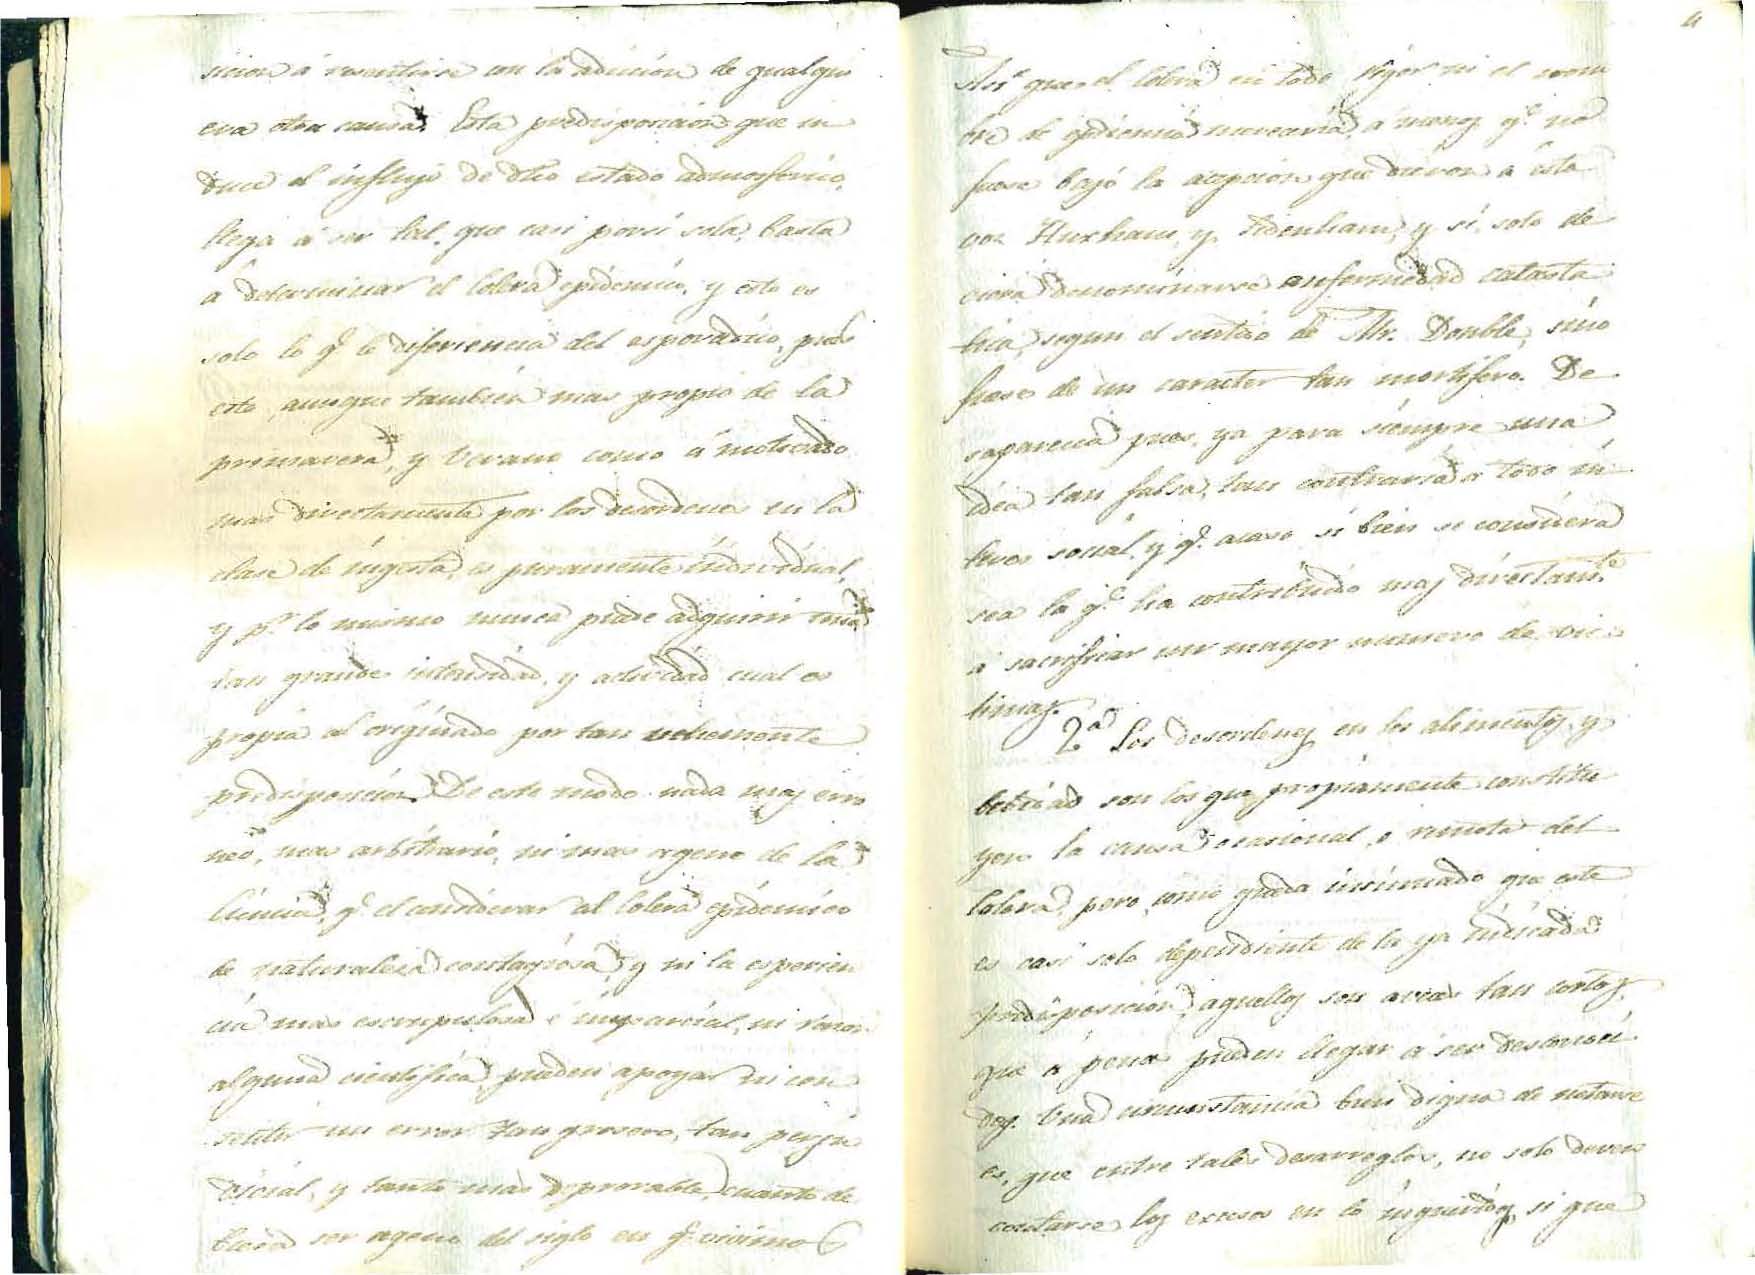 sicion á resentirse con la adicion de qualqui
era otra causa. Esta predisposicion que in
duce el influjo de dho estado admosferico,
llega á ser tal, que casi porsi sola, basta
á determinar el Colera epidemico, y esto es
solo lo q.e le diferiencia del esporadico, pues
este, aunque tambien mas propio de la
primavera, y Verano como á motivado
mas directamente por los desordenes en la
clase de ingesta, es puramente individual,
y p.r lo mismo nunca puede adquirir una
tan grande intensidad, y actividad cual es
propia al originado por tan vehemente
predisposicion. De este modo nada mas erro
neo, mas arbitrario, ni mas ageno de la
Ciencia, q.e el considerar al Colera epidemico
de naturaleza contagiosa, y ni la esperien
cia mas escrupulosa é imparcial, ni razon
alguna cientifica pueden apoyar ni con
sentir un error tan grosero, tan perju
dicial, y tanto mas deprorable, cuanto de
biera ser ageno del siglo en q.e vivimos
4
Asi que el Colera en todo rigor ni el nom
bre de epidemia mereceria, á menos q.e no
fuese bajo la acepcion que dieron á esta
voz Huxham, y Sidenham, y si, solo de
viera denominarse enfermedad catasta
tica, segun el sentido de Mr. Double, sino
fuese de un caracter tan mortifero. De
saparezca pues, ya para siempre una
idea tan falsa, tan contraria á todo in
teres social, y q.e acaso si bien se considera
sea la q.e ha contribuido mas directam.te
á sacrificar un mayor numero de vic
timas.
2.a Los desordenes en los alimentos, y
bebidas son los que propiamente constitu
yen la causa ocasional, o remota del
Colera, pero como queda insinuado que este
es casi solo dependiente de la ya indicada
predisposicion, aquellos son á veces tan cortos,
que á penas pueden llegar á ser desconoci
dos. Una circunstancia bien digna de notarse
es, que entre tales desarreglos, no solo deven
contarse los excesos en lo ingerido, si que